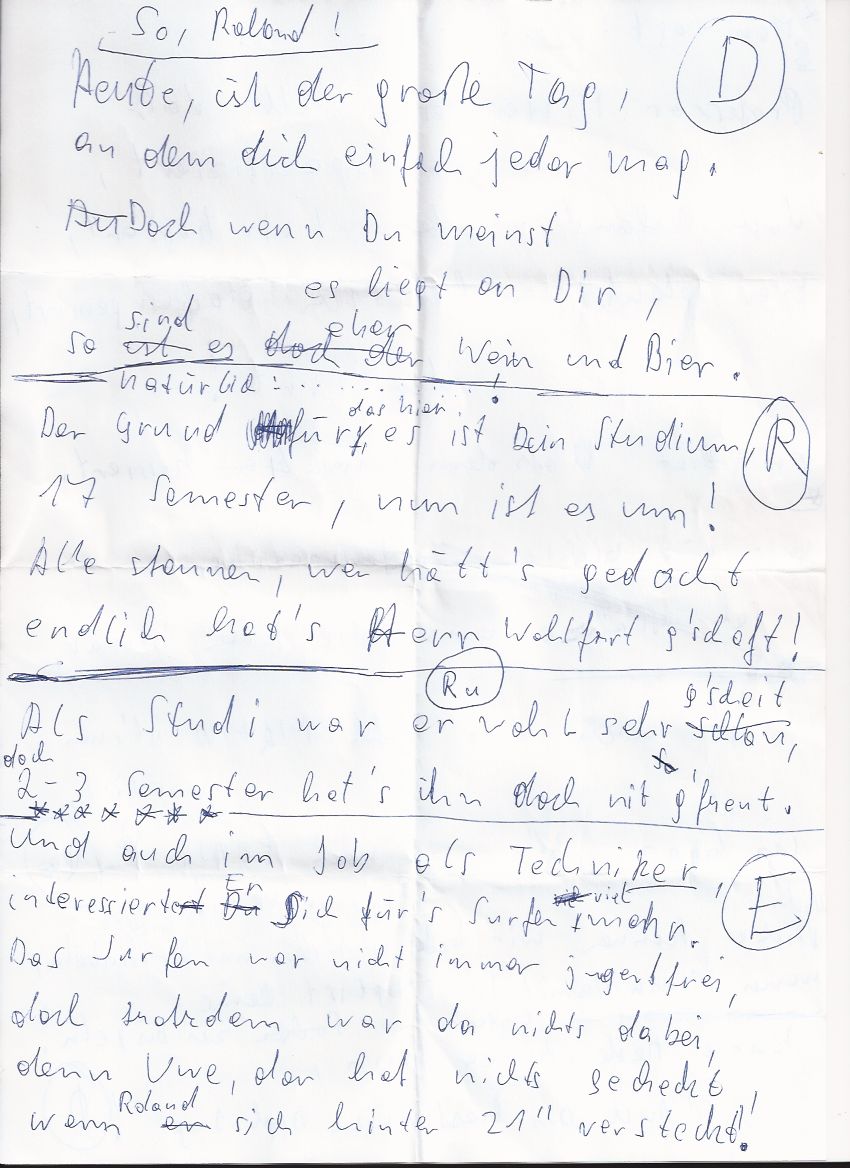 So, Roland!
D
Heute, ist der große Tag,
an dem dich einfach jeder mag.
An Doch wenn Du meinst
es liegt an Dir,
sind eher
so ist es doch der Wein und Bier.
natürlich: !
das hier:
Der Grund für, es ist Dein Studium, R
17 Semester, nun ist es um!
Alle staunen, wer hätt's gedacht
endlich hat's Herr Wohlfart g'schaft!
Ru
g'scheit
Als Studi war er wohl sehr schlau,
doch so
2-3 Semester hat's ihn doch nit g'freut.
Und auch im Job als Techniker, E
Er viel
interessiert Du Sich für's Surfen mehr.
Das Surfen war nicht immer jugentfrei,
doch trotzdem war da nichts dabei,
denn Uwe, der hat nichts gecheckt,
Roland
wenn er sich hinter 21" versteckt!